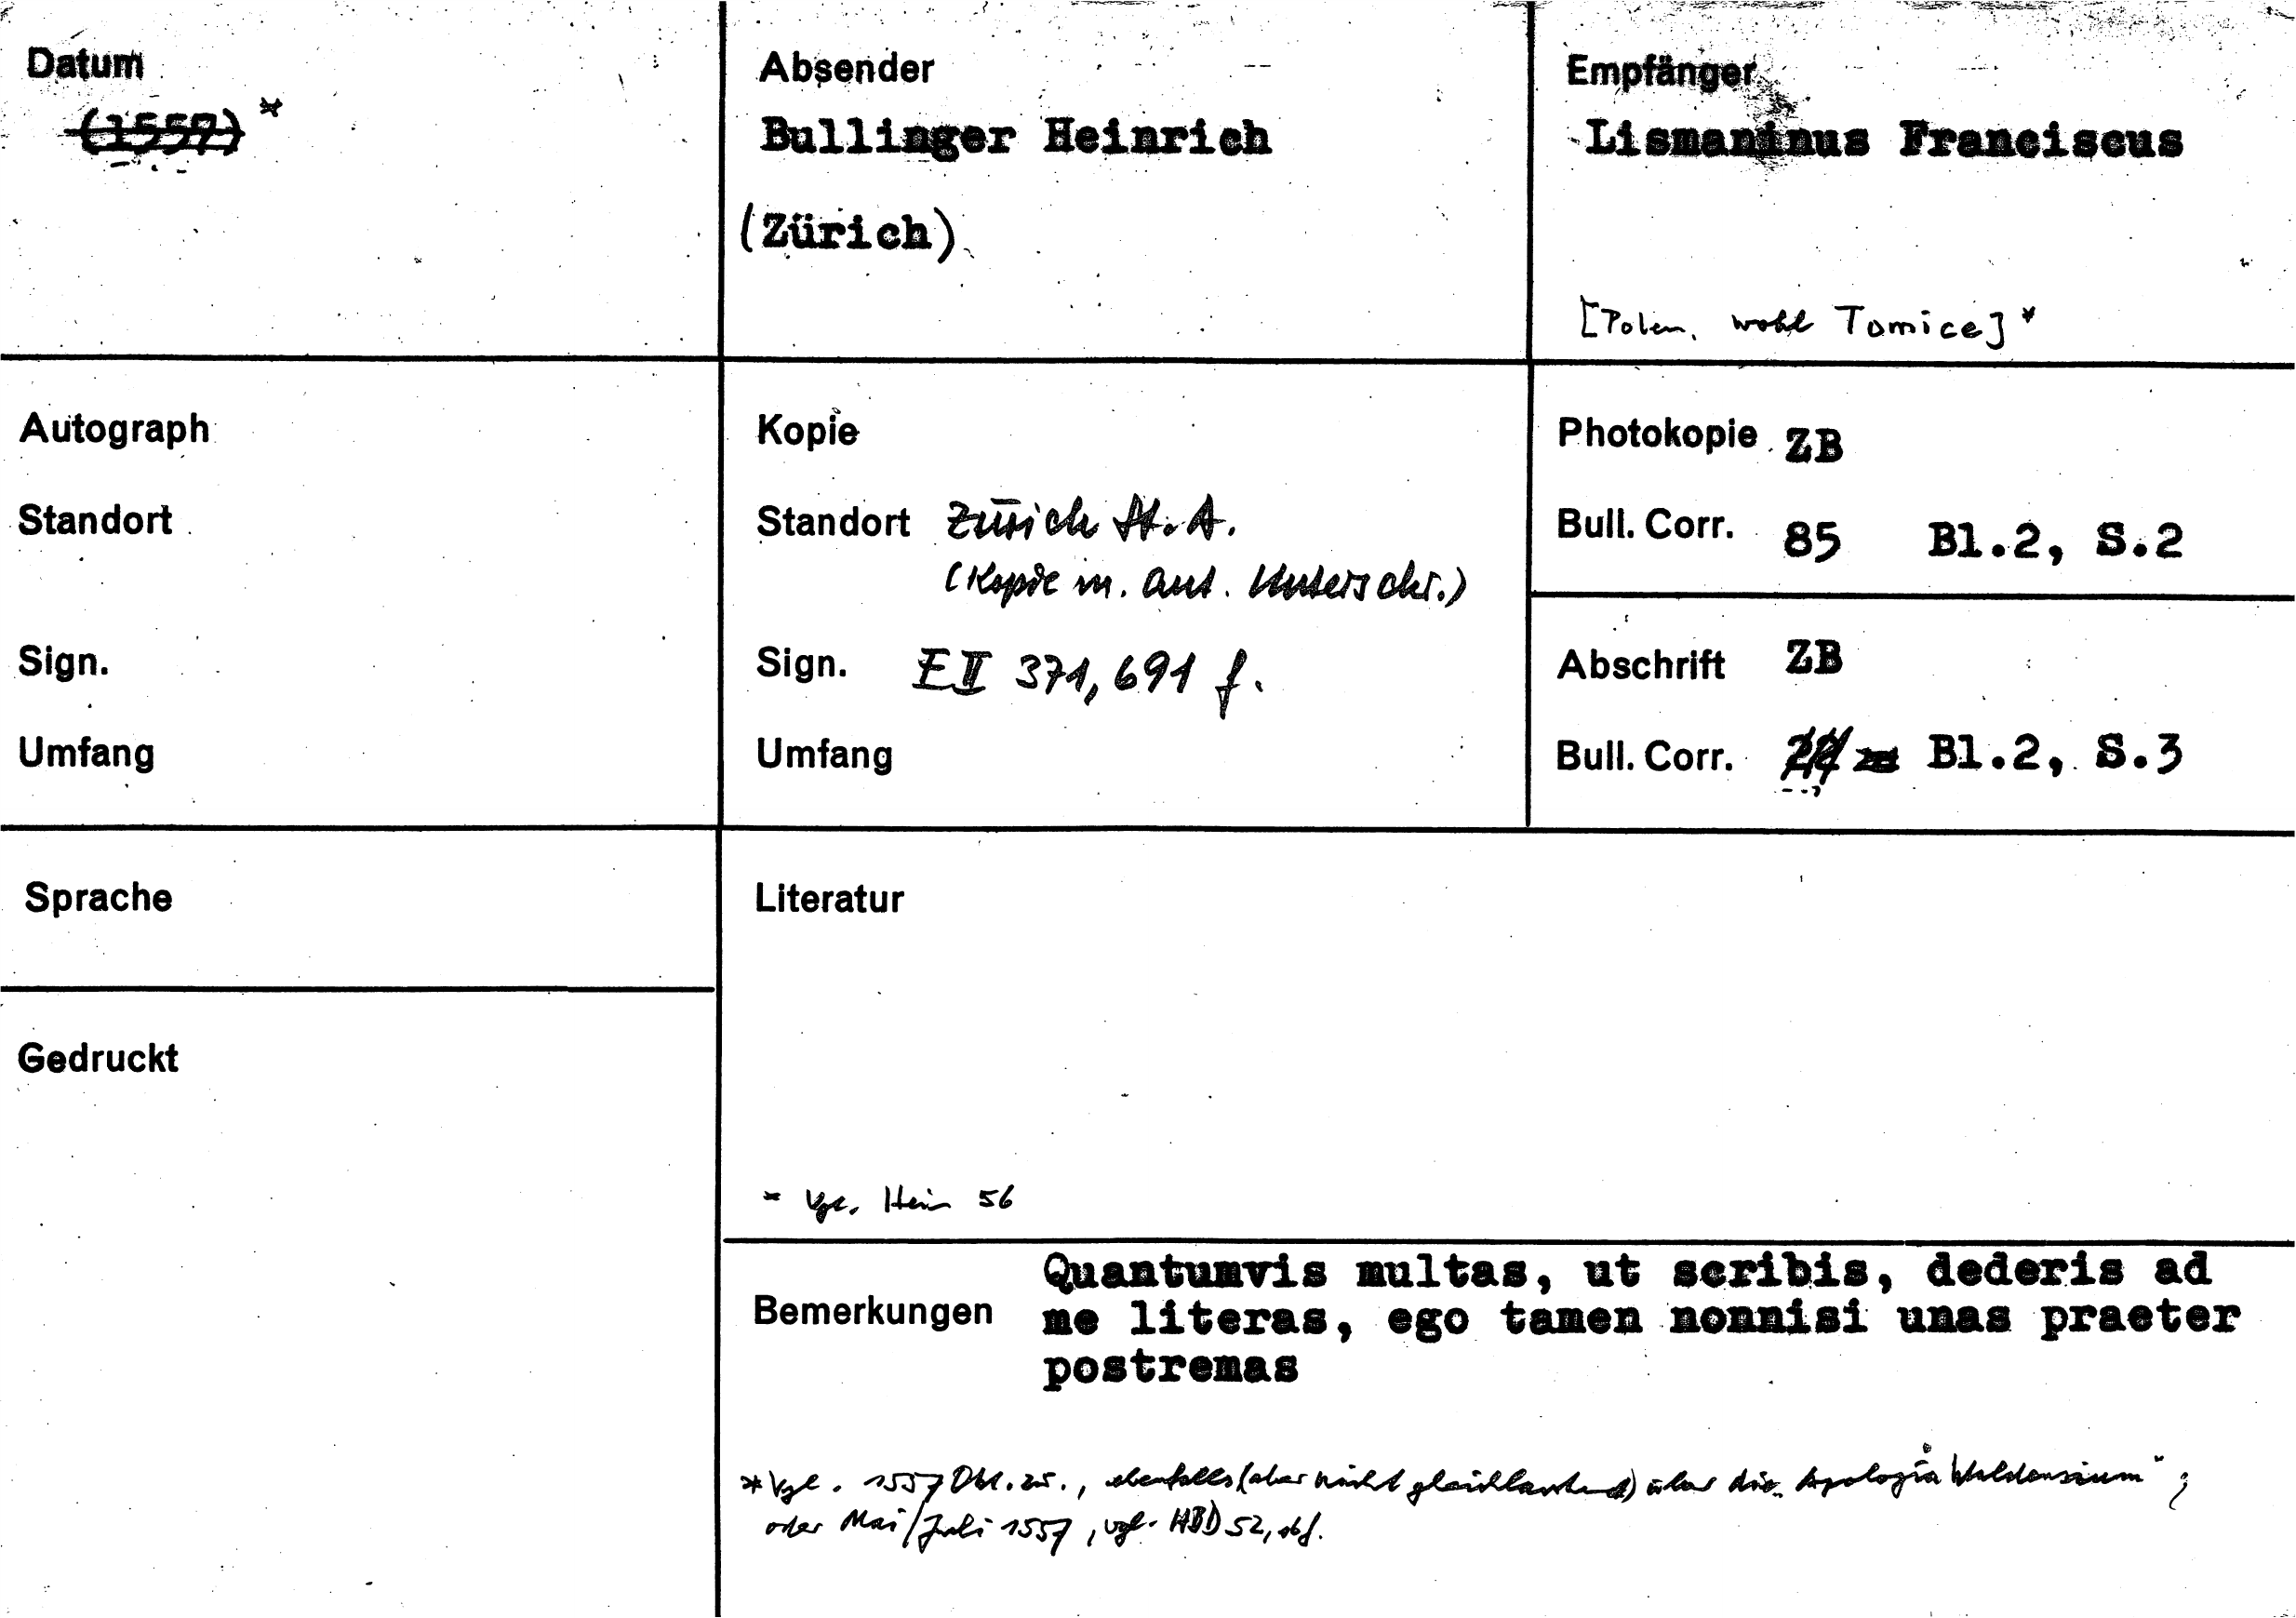 Datum
(1557) *
Absender
Bullinger Heinrich
(Zürich)
Empfänger
Lismaninus Franciscus
[Polen, wohl Tomice] *
Autograph
Standort
Sign.
Umfang
Kopie
Standort Zürich St.A.
(Kopie m. aut. Unterschr.)
Sign. E II 371, 691 f.
Umfang
Photokopie ZB
Bull. Corr. 85 Bl.2, S.2
Abschrift ZB
Bull. Corr. Bl.2, S.3
Sprache
Gedruckt
Literatur
* Vgl. Hein 56
Bemerkungen
Quantumvis multas, ut scribis, dederis ad
me literas, ego tamen nonnisi unas praeter
postremas
* Vgl. 1557 Okt. 25., ebenfalls (aber nicht gleichlautend) über die Apologia Waldensium" ;
oder Mai/Juli 1557, vgl. HBD 52, 16f.